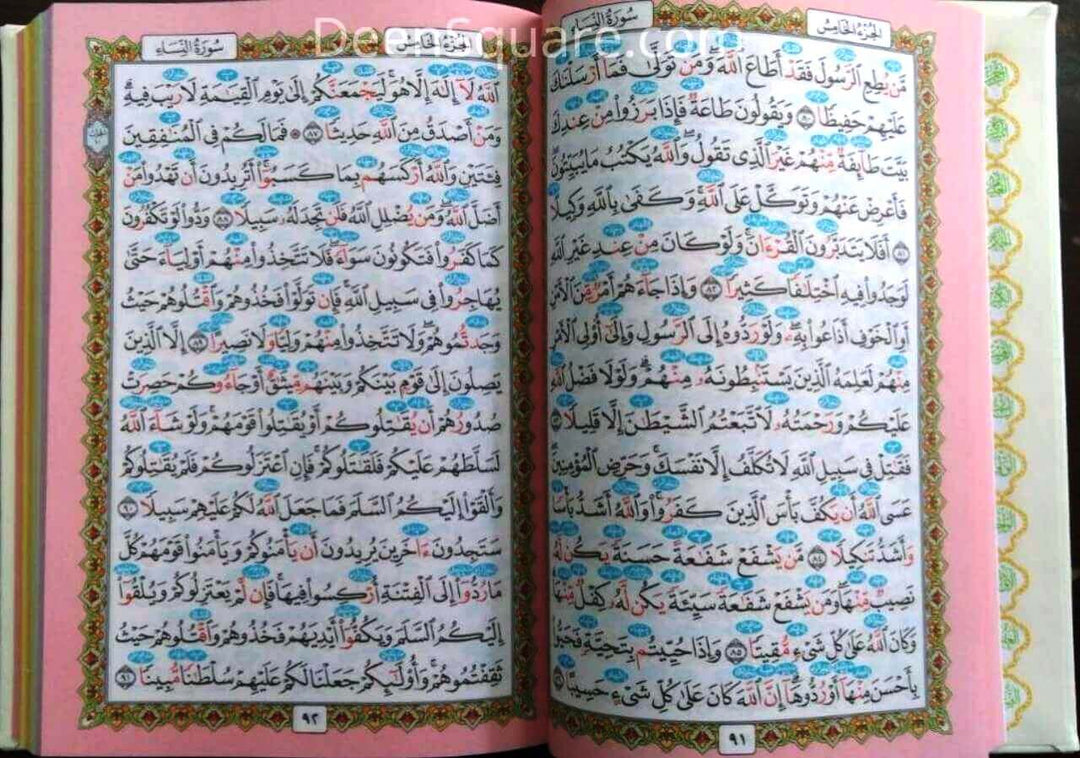 DeenSquare.com
سورة النساء
الجزء الخامس
مَّن يُطِعِ ٱلرَّسُولَ فَقَدْ أَطَاعَ ٱللَّهَ وَمَن تَوَلَّىٰ فَمَآ أَرْسَلْنَٰكَ
عَلَيْهِمْ حَفِيظًا ٨٠ وَيَقُولُونَ طَاعَةٌ فَإِذَا بَرَزُوا۟ مِنْ عِندِكَ
بَيَّتَ طَآئِفَةٌ مِّنْهُمْ غَيْرَ ٱلَّذِى تَقُولُ وَٱللَّهُ يَكْتُبُ مَا يُبَيِّتُونَ
فَأَعْرِضْ عَنْهُمْ وَتَوَكَّلْ عَلَى ٱللَّهِ وَكَفَىٰ بِٱللَّهِ وَكِيلًا
٨١ أَفَلَا يَتَدَبَّرُونَ ٱلْقُرْءَانَ وَلَوْ كَانَ مِنْ عِندِ غَيْرِ ٱللَّهِ
لَوَجَدُوا۟ فِيهِ ٱخْتِلَٰفًا كَثِيرًا ٨٢ وَإِذَا جَآءَهُمْ أَمْرٌ مِّنَ ٱلْأَمْنِ
أَوِ ٱلْخَوْفِ أَذَاعُوا۟ بِهِۦ وَلَوْ رَدُّوهُ إِلَى ٱلرَّسُولِ وَإِلَىٰٓ أُو۟لِى ٱلْأَمْرِ
مِنْهُمْ لَعَلِمَهُ ٱلَّذِينَ يَسْتَنۢبِطُونَهُۥ مِنْهُمْ وَلَوْلَا فَضْلُ ٱللَّهِ
عَلَيْكُمْ وَرَحْمَتُهُۥ لَٱتَّبَعْتُمُ ٱلشَّيْطَٰنَ إِلَّا قَلِيلًا ٨٣
فَقَٰتِلْ فِى سَبِيلِ ٱللَّهِ لَا تُكَلَّفُ إِلَّا نَفْسَكَ وَحَرِّضِ ٱلْمُؤْمِنِينَ
عَسَى ٱللَّهُ أَن يَكُفَّ بَأْسَ ٱلَّذِينَ كَفَرُوا۟ وَٱللَّهُ أَشَدُّ بَأْسًا
وَأَشَدُّ تَنكِيلًا ٨٤ مَّن يَشْفَعْ شَفَٰعَةً حَسَنَةً يَكُن لَّهُۥ
نَصِيبٌ مِّنْهَا وَمَن يَشْفَعْ شَفَٰعَةً سَيِّئَةً يَكُن لَّهُۥ كِفْلٌ مِّنْهَا
وَكَانَ ٱللَّهُ عَلَىٰ كُلِّ شَىْءٍ مُّقِيتًا ٨٥ وَإِذَا حُيِّيتُم بِتَحِيَّةٍ فَحَيُّوا۟
بِأَحْسَنَ مِنْهَآ أَوْ رُدُّوهَآ إِنَّ ٱللَّهَ كَانَ عَلَىٰ كُلِّ شَىْءٍ حَسِيبًا ٨٦
٩١
الجزء الخامس
سورة النساء
ٱللَّهُ لَآ إِلَٰهَ إِلَّا هُوَ لَيَجْمَعَنَّكُمْ إِلَىٰ يَوْمِ ٱلْقِيَٰمَةِ لَا رَيْبَ فِيهِ
وَمَنْ أَصْدَقُ مِنَ ٱللَّهِ حَدِيثًا ٨٧ ۞ فَمَا لَكُمْ فِى ٱلْمُنَٰفِقِينَ
فِئَتَيْنِ وَٱللَّهُ أَرْكَسَهُم بِمَا كَسَبُوٓا۟ أَتُرِيدُونَ أَن تَهْدُوا۟ مَنْ
أَضَلَّ ٱللَّهُ وَمَن يُضْلِلِ ٱللَّهُ فَلَن تَجِدَ لَهُۥ سَبِيلًا ٨٨ وَدُّوا۟ لَوْ تَكْفُرُونَ
كَمَا كَفَرُوا۟ فَتَكُونُونَ سَوَآءً فَلَا تَتَّخِذُوا۟ مِنْهُمْ أَوْلِيَآءَ حَتَّىٰ
يُهَاجِرُوا۟ فِى سَبِيلِ ٱللَّهِ فَإِن تَوَلَّوْا۟ فَخُذُوهُمْ وَٱقْتُلُوهُمْ حَيْثُ
وَجَدتُّمُوهُمْ وَلَا تَتَّخِذُوا۟ مِنْهُمْ وَلِيًّا وَلَا نَصِيرًا ٨٩ إِلَّا ٱلَّذِينَ
يَصِلُونَ إِلَىٰ قَوْمٍۭ بَيْنَكُمْ وَبَيْنَهُم مِّيثَٰقٌ أَوْ جَآءُوكُمْ حَصِرَتْ
صُدُورُهُمْ أَن يُقَٰتِلُوكُمْ أَوْ يُقَٰتِلُوا۟ قَوْمَهُمْ وَلَوْ شَآءَ ٱللَّهُ
لَسَلَّطَهُمْ عَلَيْكُمْ فَلَقَٰتَلُوكُمْ فَإِنِ ٱعْتَزَلُوكُمْ فَلَمْ يُقَٰتِلُوكُمْ
وَأَلْقَوْا۟ إِلَيْكُمُ ٱلسَّلَمَ فَمَا جَعَلَ ٱللَّهُ لَكُمْ عَلَيْهِمْ سَبِيلًا ٩٠
سَتَجِدُونَ ءَاخَرِينَ يُرِيدُونَ أَن يَأْمَنُوكُمْ وَيَأْمَنُوا۟ قَوْمَهُمْ كُلَّ
مَا رُدُّوٓا۟ إِلَى ٱلْفِتْنَةِ أُرْكِسُوا۟ فِيهَا فَإِن لَّمْ يَعْتَزِلُوكُمْ وَيُلْقُوٓا۟
إِلَيْكُمُ ٱلسَّلَمَ وَيَكُفُّوٓا۟ أَيْدِيَهُمْ فَخُذُوهُمْ وَٱقْتُلُوهُمْ حَيْثُ
ثَقِفْتُمُوهُمْ وَأُو۟لَٰٓئِكُمْ جَعَلْنَا لَكُمْ عَلَيْهِمْ سُلْطَٰنًا مُّبِينًا ٩١
٩٢